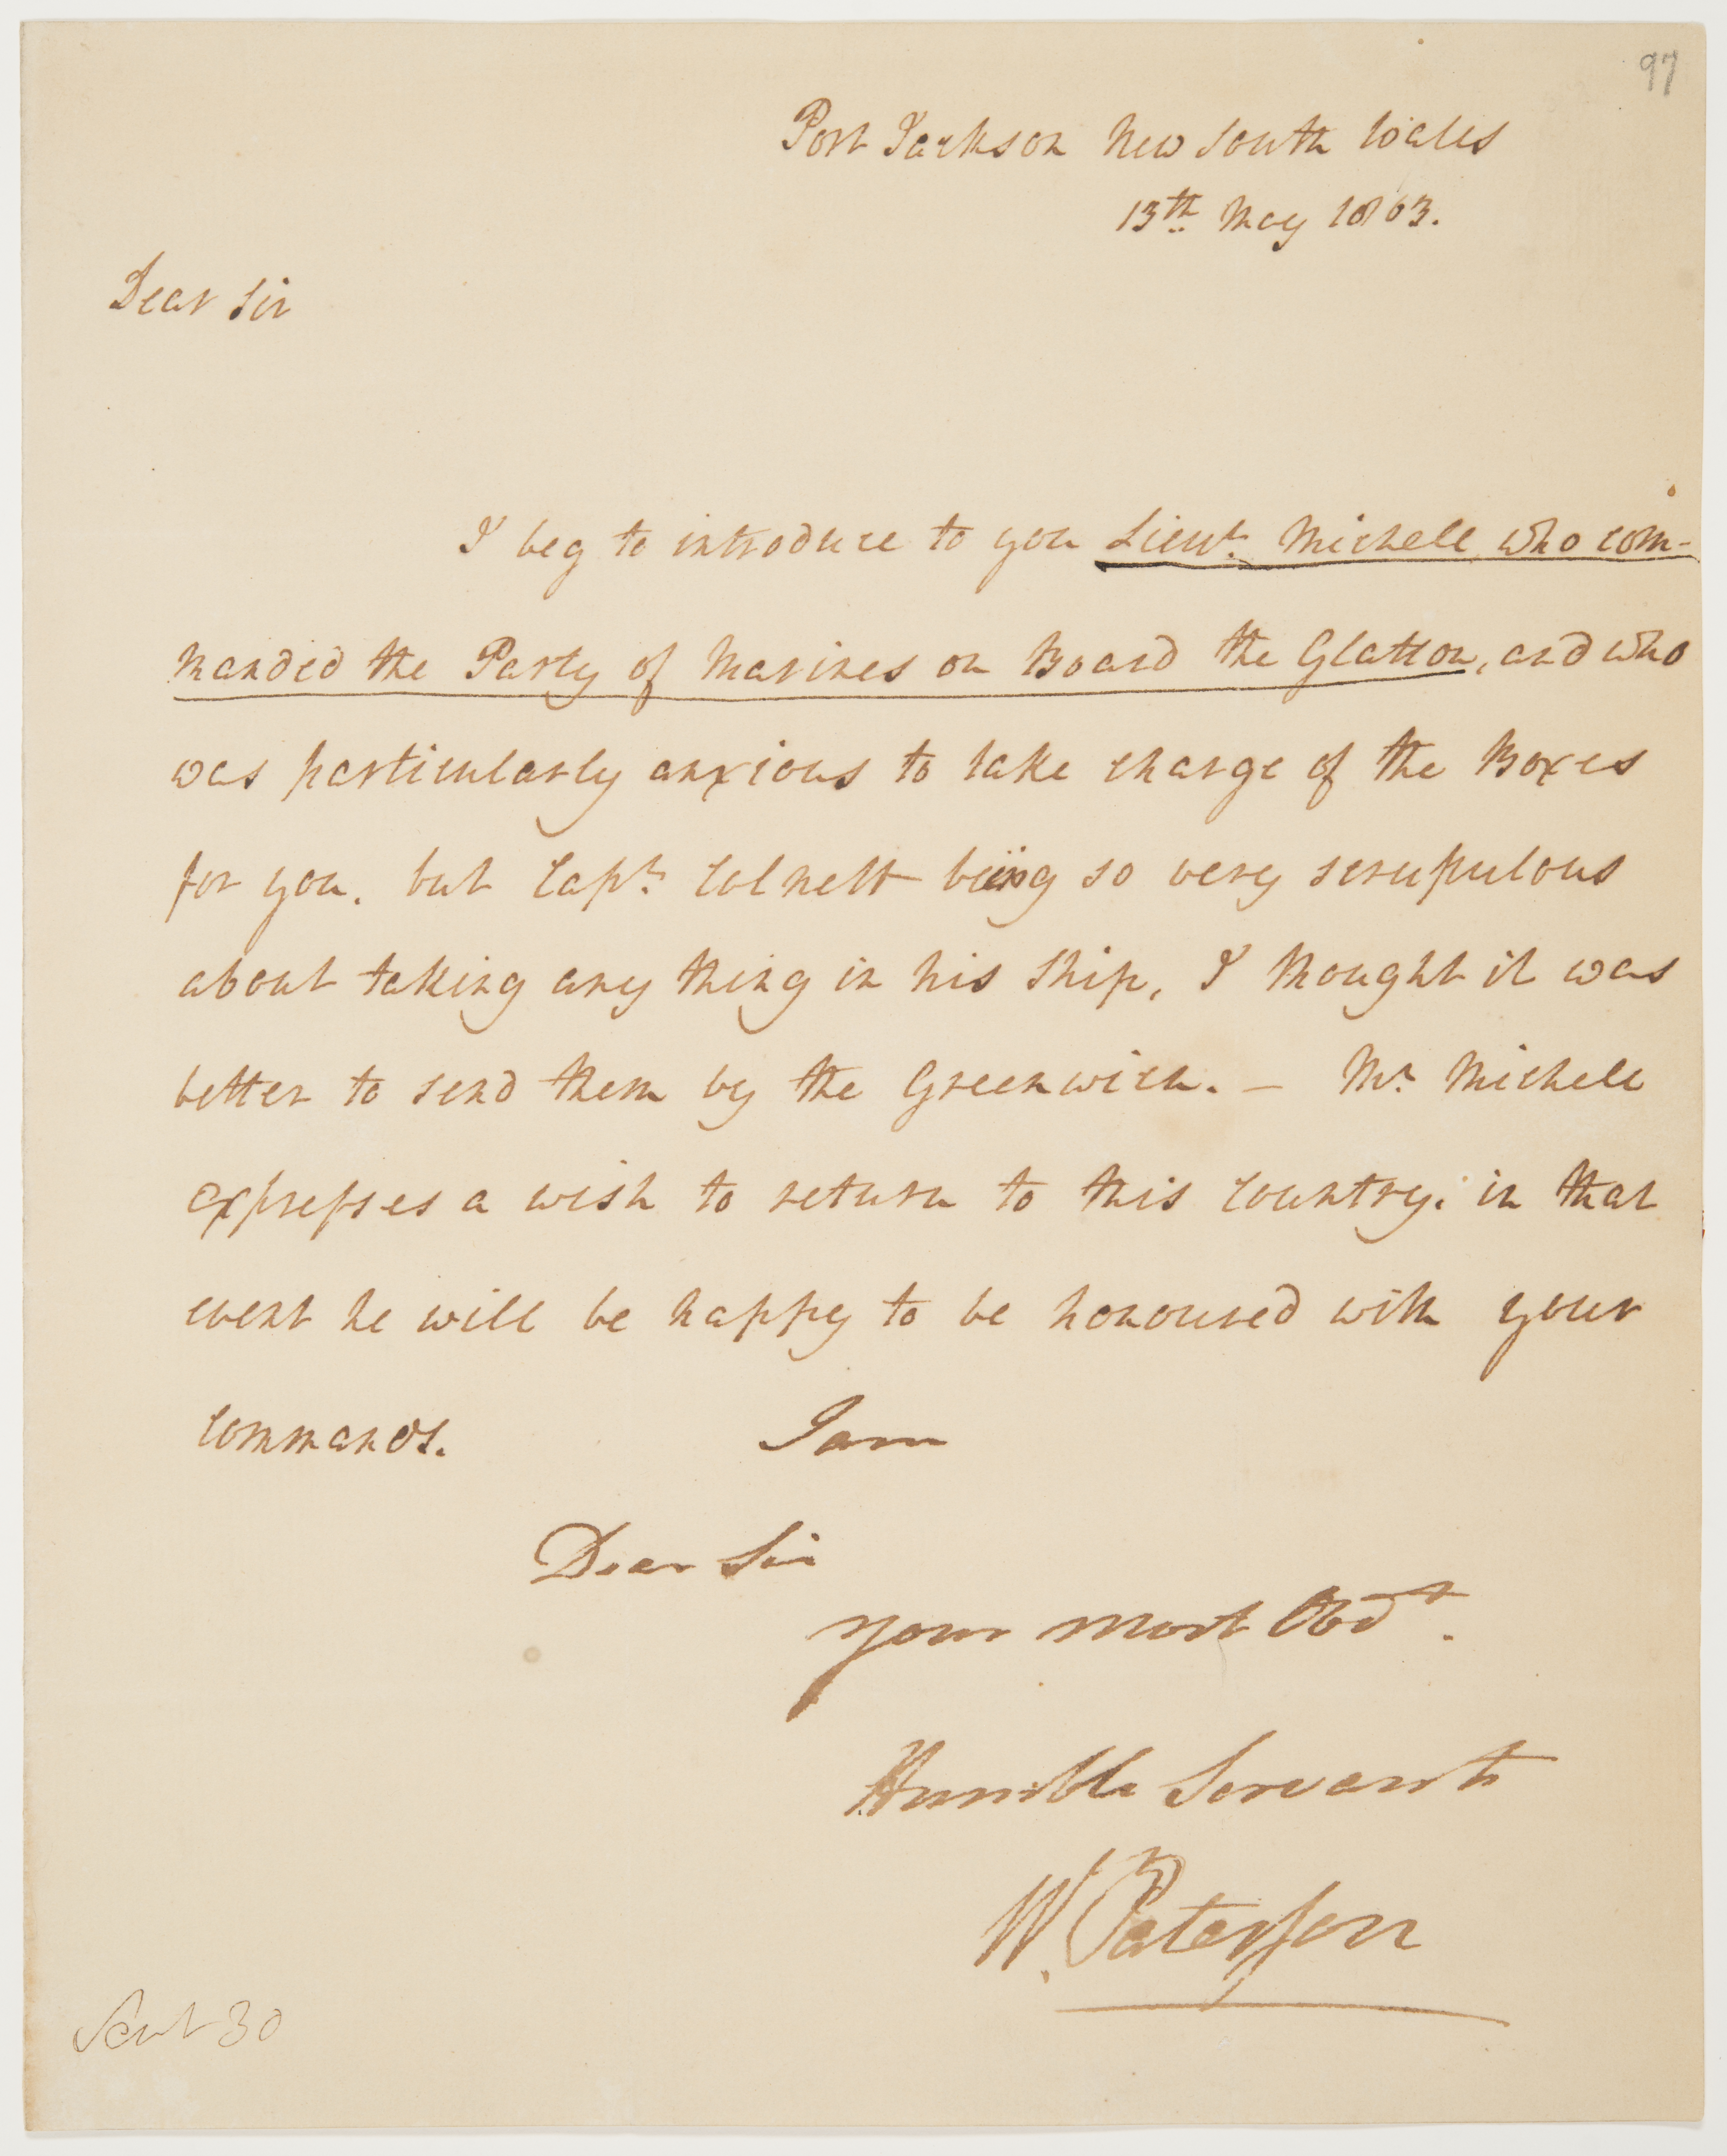 97
Port Jackson New South Wales
13th May 1803.
Dear Sir
I beg to introduce to you Lieut. Michell who com-
manded the Party of Marines on Board the Glatton, and who
was particularly anxious to take charge of the Boxes
for you. but Capt. Colnett being so very scrupulous
about taking any thing in his Ship, I thought it was
better to send them by the Greenwich. — Mr. Michell
expresses a wish to return to this Country. in that
event he will be happy to be honoured with your
Commands. I am
Dear Sir
your most Obdt.
Humble Servant
W. Paterson
Sent 30